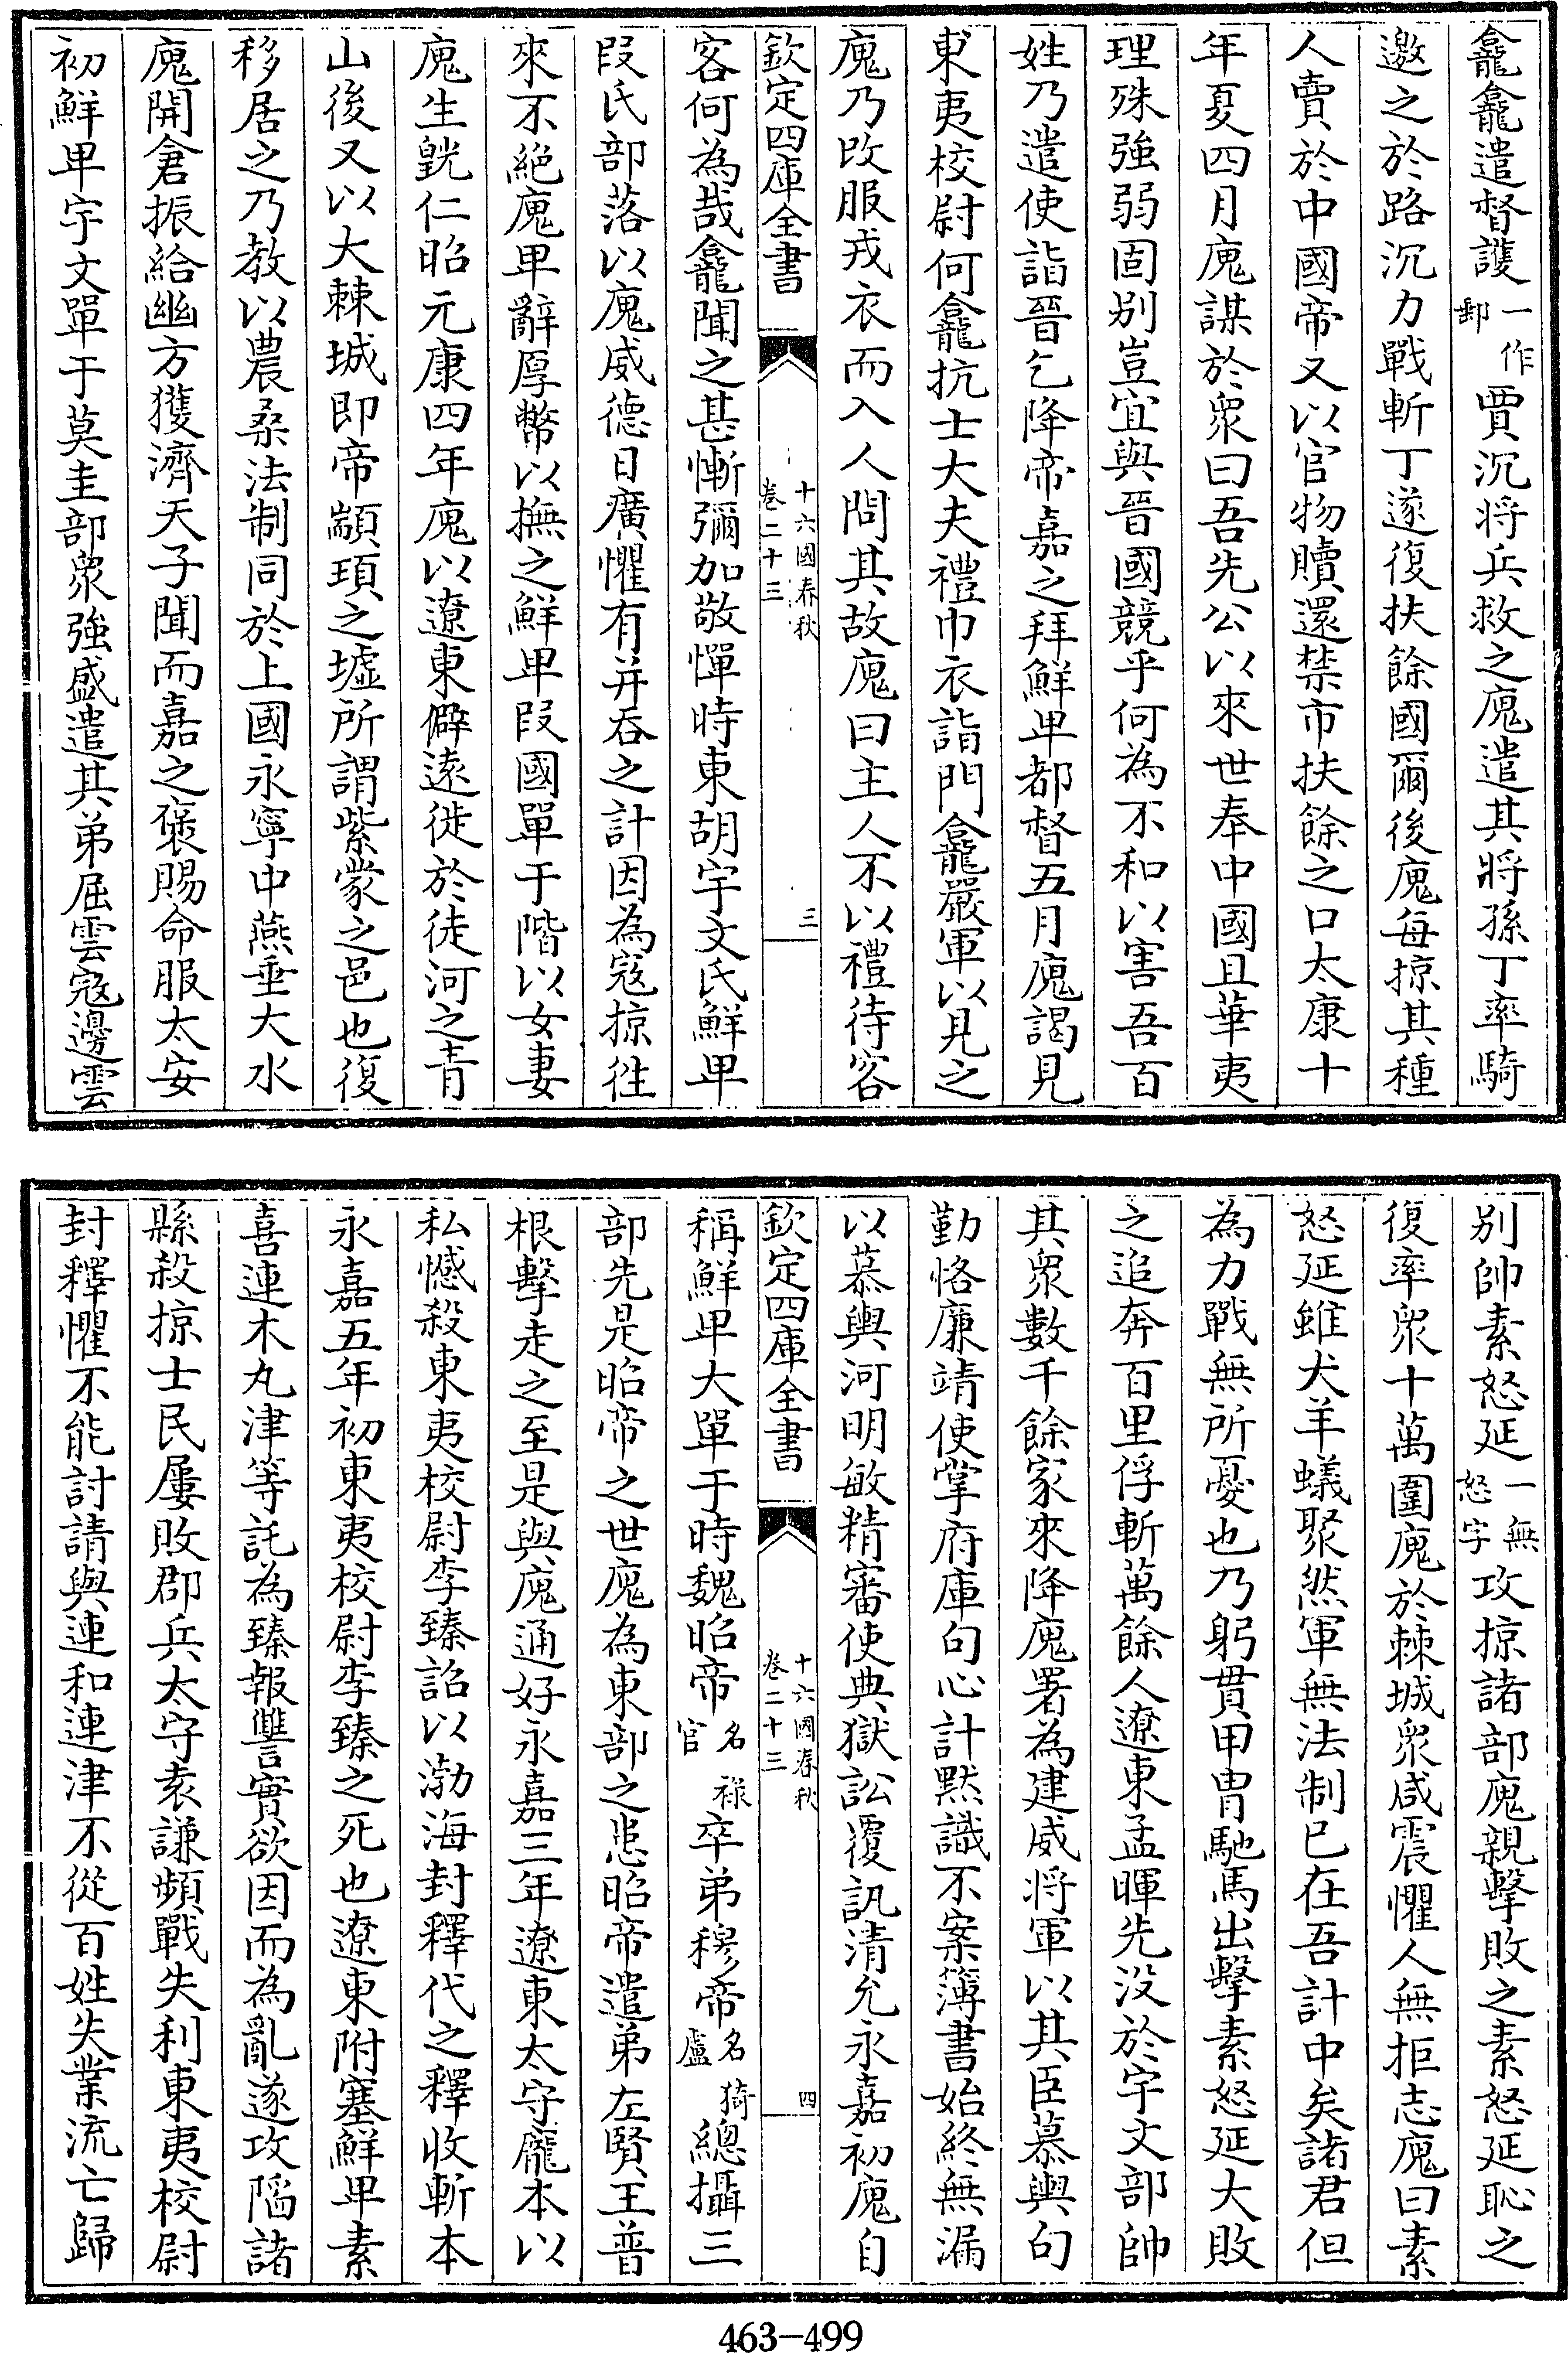 龕龕遣督護一作郵賈沉將兵救之廆遣其將孫丁率騎
邀之於路沉力戰斬丁遂復扶餘國爾後廆每掠其種
人賣於中國帝又以官物贖還禁市扶餘之口太康十
年夏四月廆謀於衆曰吾先公以來世奉中國且華夷
理殊強弱固別豈宜與晉國競乎何為不和以害吾百
姓乃遣使詣晉乞降帝嘉之拜鮮卑都督五月廆謁見
東夷校尉何龕抗士大夫禮巾衣詣門龕嚴軍以見之
廆乃改服戎衣而入人問其故廆曰主人不以禮待客
欽定四庫全書 十六國春秋 卷二十三 三
客何為哉龕聞之甚慚彌加敬憚時東胡宇文氏鮮卑
段氏部落以廆威德日廣懼有并吞之計因為寇掠往
來不絕廆卑辭厚幣以撫之鮮卑段國單于階以女妻
廆生皝仁昭元康四年廆以遼東僻遠徙於徒河之青
山後又以大棘城即帝顓頊之墟所謂紫蒙之邑也復
移居之乃教以農桑法制同於上國永寧中燕垂大水
廆開倉振給幽方獲濟天子聞而嘉之褒賜命服太安
初鮮卑宇文單于莫圭部衆強盛遣其弟屈雲寇邊雲
別帥素怒延一無怒字攻掠諸部廆親擊敗之素怒延恥之
復率衆十萬圍廆於棘城衆咸震懼人無拒志廆曰素
怒延雖犬羊蟻聚然軍無法制已在吾計中矣諸君但
為力戰無所憂也乃躬貫甲胄馳馬出擊素怒延大敗
之追奔百里俘斬萬餘人遼東孟暉先沒於宇文部帥
其衆數千餘家來降廆署為建威將軍以其臣慕輿句
勤恪廉靖使掌府庫句心計默識不案簿書始終無漏
以慕輿河明敏精審使典獄訟覆訊清允永嘉初廆自
欽定四庫全書 十六國春秋 卷二十三 四
稱鮮卑大單于時魏昭帝名祿官卒弟穆帝名猗盧總攝三
部先是昭帝之世廆為東部之患昭帝遣弟左賢王普
根擊走之至是與廆通好永嘉三年遼東太守龐本以
私憾殺東夷校尉李臻詔以渤海封釋代之釋收斬本
永嘉五年初東夷校尉李臻之死也遼東附塞鮮卑素
喜連木丸津等託為臻報讐實欲因而為亂遂攻陷諸
縣殺掠士民屢敗郡兵太守袁謙頻戰失利東夷校尉
封釋懼不能討請與連和連津不從百姓失業流亡歸
463—499